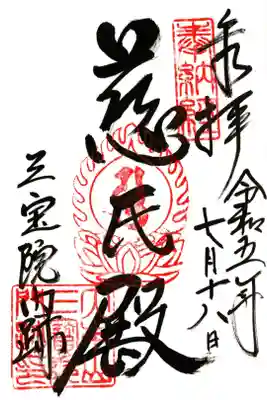 奉拝
令和五年
七月十八日
慈氏殿
三宝院門跡
奉納経